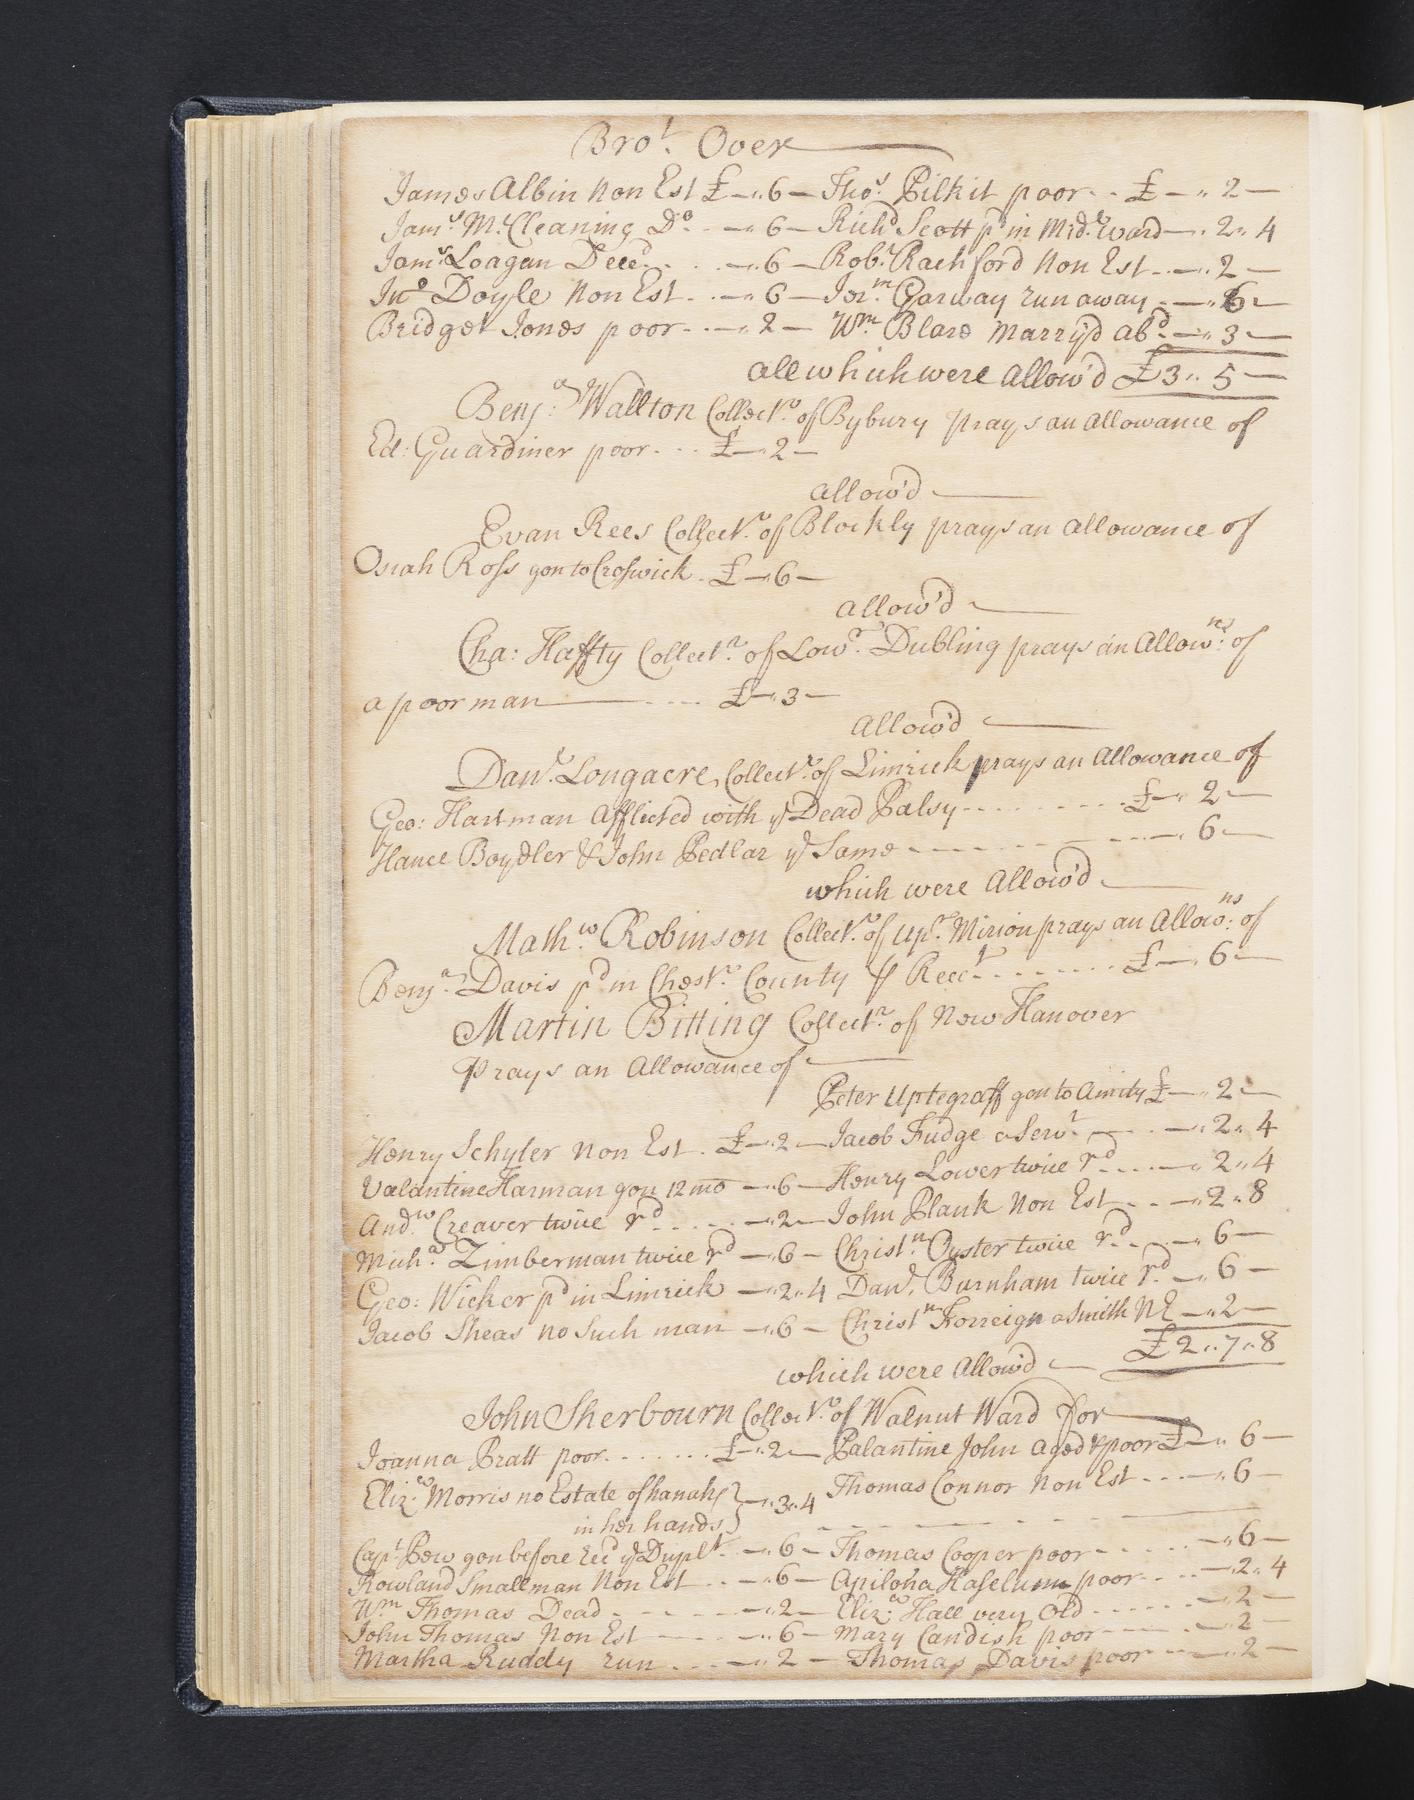 Bro.t Over
James Albin Non Est £ — " 6 — Tho.s Pilkit poor . . £ — " 2 —
Jam.s M.cCleaning D.o . . — " 6 — Rich.d Scott p.d in Mid.le Ward — " 2 " 4
Jam.s Loagan Dece.d . . . — " 6 — Rob.t Rachford Non Est . . — " 2 —
Jn.o Doyle Non Est . . — " 6 — Jer.m Garway run away . — " 6 —
Bridget Jones poor . . — " 2 — W.m Blare Marry'd ab.d — " 3 —
all which were Allow'd £3 " 5 —
Benj.a Wallton Collect.r of Bybury prays an allowance of
Ed: Guardiner poor . . . £ — " 2 —
allow'd
Evan Rees Collect.r of Blockly prays an allowance of
Osiah Ross gon to Croswick . £ — " 6 —
allow'd
Cha: Haffty Collect.r of Low.r Dubling prays an Allow.ns of
a poor man . . . . £ — " 3 —
allow'd
Dan.l Longacre Collect.r of Limrick prays an allowance of
Geo: Hartman Afflicted with ye Dead Palsy . . . . £ — " 2 —
Hance Boydler & John Pedlar ye Same . . . . — " 6 —
which were Allow'd
Math.w Robinson Collect.r of Up.r Mirion prays an Allow.ns of
Benj.a Davis p.d in Chest.r County p Rec.t . . . . £ — " 6 —
Martin Bitting Collect.r of New Hanover
Prays an Allowance of
Peter Uptegraff gon to Amity £ — " 2 —
Henry Schyler Non Est . £ — " 2 — Jacob Fudge a Serv.t — " 2 " 4
Valantine Harman gon 12 mo — " 6 — Henry Lower twice r.d . . . — " 2 " 4
And.w Creaver twice r.d . . . . — " 2 — John Plank Non Est . . — " 2 " 8
Mich.a Zimberman twice r.d — " 6 — Christ.n Oyster twice r.d . . — " 6 —
Geo: Wicker p.d in Limrick — " 2 " 4 Dan.l Burnham twice r.d — " 6 —
Jacob Sheas no Such man — " 6 — Christ.n Forreign a Smith N E — " 2 —
£2 " 7 " 8
which were Allow'd
John Sherbourn Collect.r of Walnut Ward for
Joanna Pratt poor . . . . . . £ — " 2 — Palantine John aged & poor £ — " 6 —
Eliz.a Morris no Estate of hanahs } — " 3 " 4 Thomas Connor Non Est . . . — " 6 —
in her hands
Cap.t Pew gon before rec.d ye Dupl.t . — " 6 — Thomas Cooper poor . . . . — " 6 —
Rowland Smallman Non Est . . — " 6 — Apiloha Haselum poor . . . — " 2 " 4
W.m Thomas Dead . . . . — " 2 — Eliz.a Hall very Old . . . . — " 2 —
John Thomas Non Est — " 6 — Mary Candish poor . . . . — " 2 —
Martha Ruddy run . . . — " 2 — Thomas Davis poor . . . — " 2 —